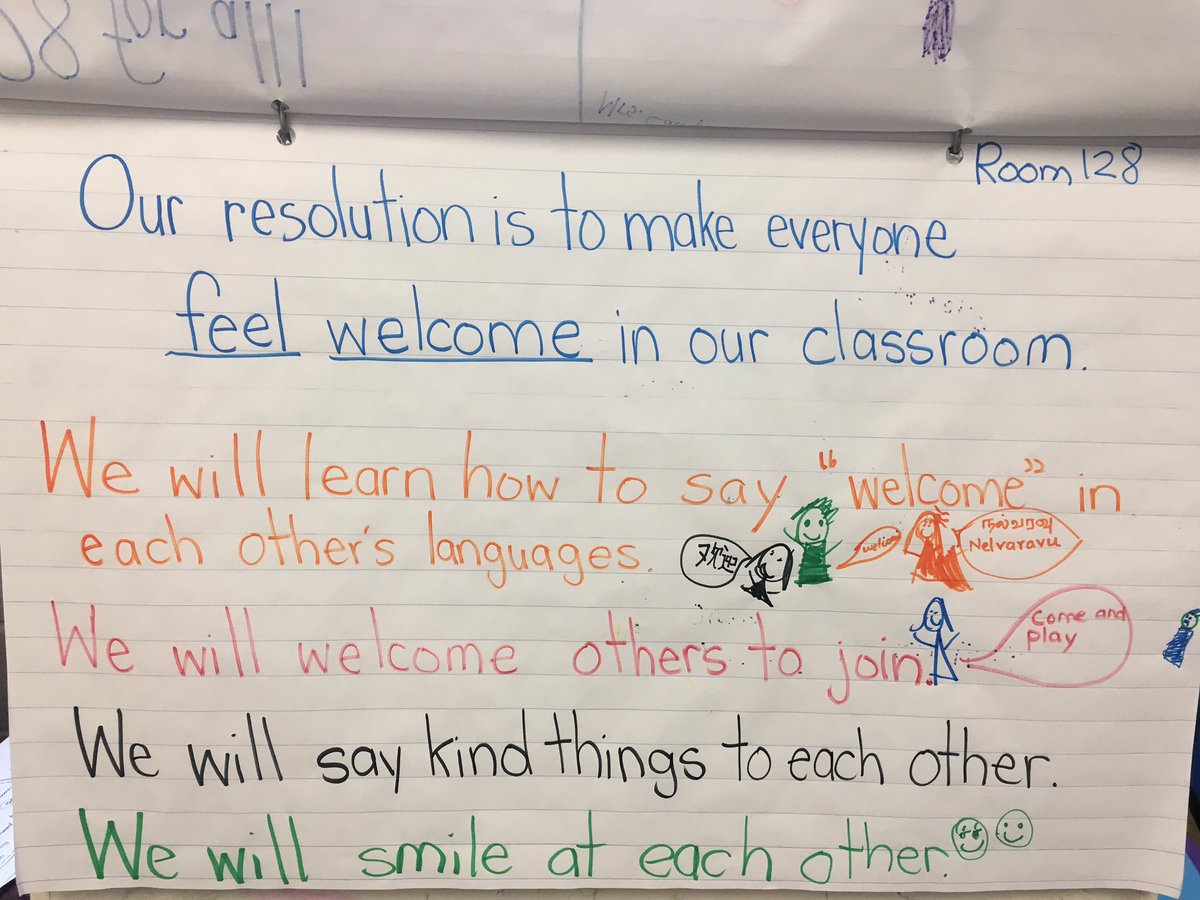 for all
We
Room 128
Our resolution is to make everyone
feel welcome in our classroom.
We will learn how to say "welcome" in
each other's languages.
欢迎
welcome
நல்வரவு
Nelvaravu
We will welcome others to join.
Come and
play
We will say kind things to each other.
We will smile at each other.